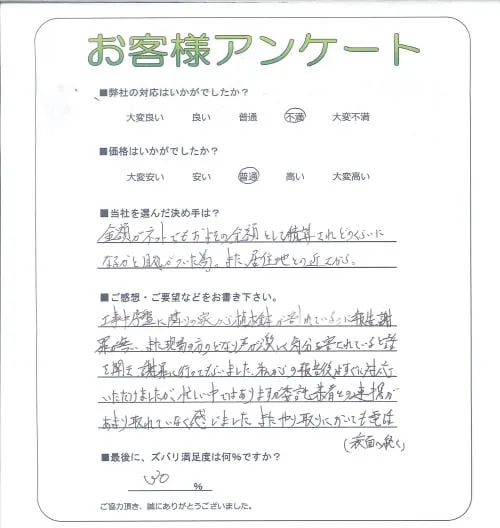 お客様アンケート
■弊社の対応はいかがでしたか？
大変良い 良い 普通 不満 大変不満
■価格はいかがでしたか？
大変安い 安い 普通 高い 大変高い
■当社を選んだ決め手は？
金額がネットでもおよその金額として積算されどのくらいに
なるかと目処がついた為。また、居住地との近さから。
■ご感想・ご要望などをお書き下さい。
工事中序盤に隣りの家から植木鉢が割れているのに報告謝
罪が無い、また現場の方のどなり声が激しく気分を害されていると話
を聞き謝罪に行ってもらいました。私からの報告後はすぐに対応
いただけましたが、忙しい中ではありますが委託業者との連携が
あまり取れていなく感じました。またやり取りにおいても電話
(裏面へ続く)
■最後に、ズバリ満足度は何%ですか？
%
ご協力頂き、誠にありがとうございました。